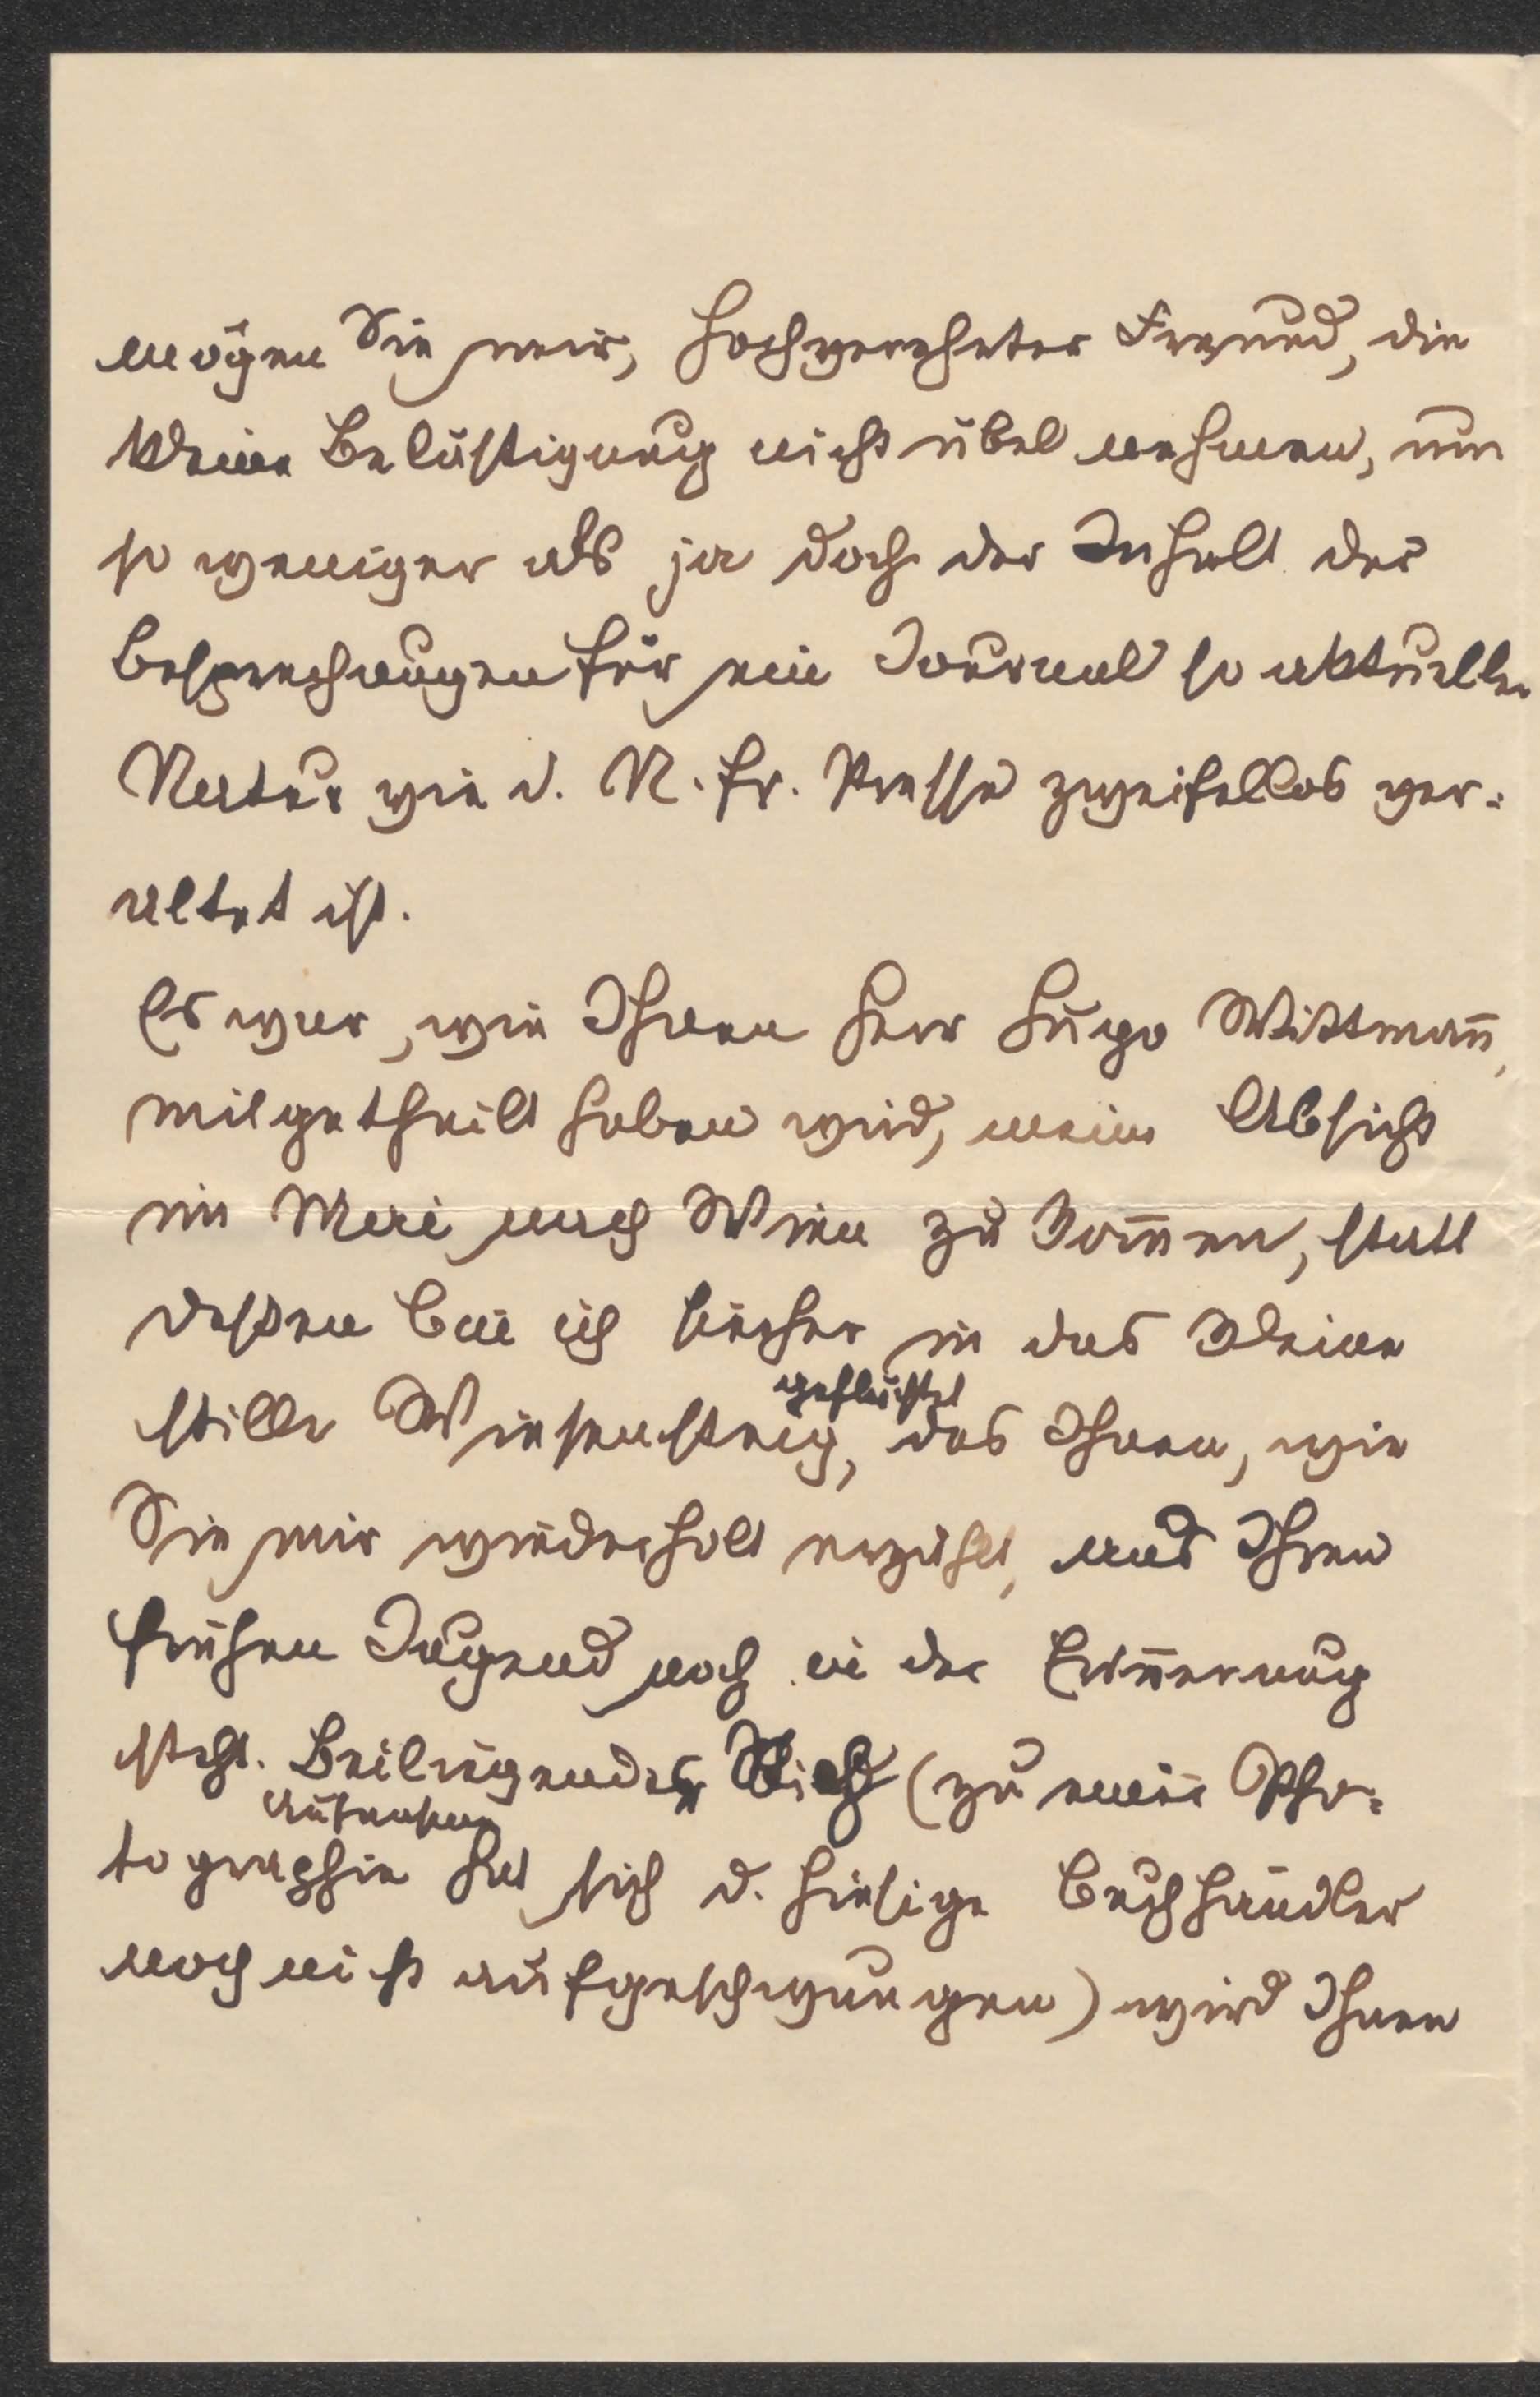 mögen Sie mir, hochverehrter Freund, die
kleine Belästigung nicht übel nehmen, um
so weniger als ja doch der Inhalt der
Besprechungen für ein Journal so aktueller
Natur wie d. N. fr. Presse zweifellos ver-
altet ist.
Es war, wie Ihnen Herr Hugo Wittmann̄,
mitgetheilt haben wird, meine Absicht
im Mai nach Wien zu kom̄en, statt
dessen bin ich hierher in das kleine
geflüchtet
stille Wiesensteig, das Ihnen, wie
Sie mir wiederholt erzählt, aus Ihrer
frühen Jugend noch in der Erin̄erung
steht. Beiliegendes (zu einer Pho-
Aufnahme
tographie hat sich d. hiesige Buchhändler
noch nicht aufgeschwungen) wird Ihnen